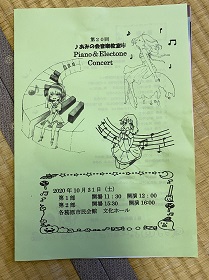 第20回
♪あみの会音楽教室♪
Piano & Electone
Concert
2020年10月31日（土）
第1部　開場11：30　開演12：00
第2部　開場15:30　開演16:00
各務原市民会館　文化ホール